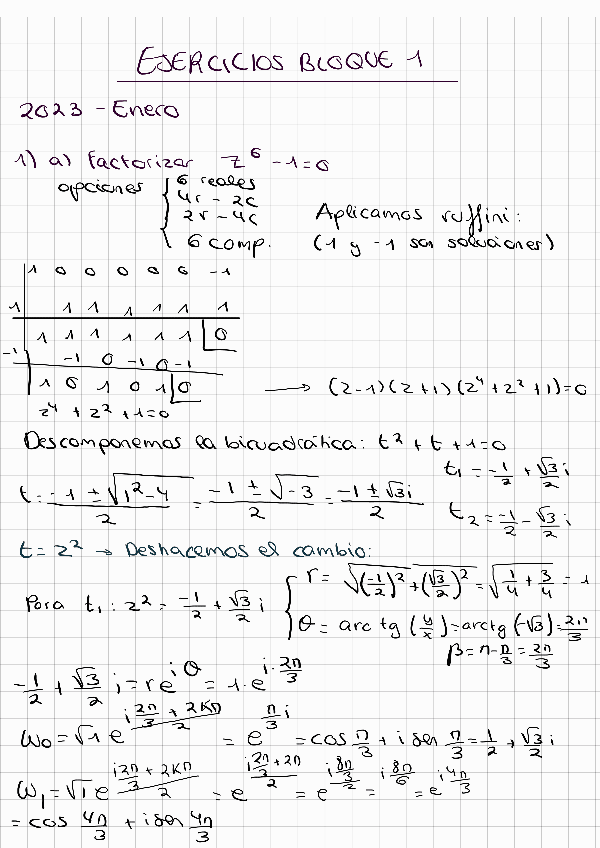 EJERCICIOS BLOQUE 1
2023 - Enero
1) a) Factorizar z^6 - 1 = 0
opciones { 6 reales
4r - 2c
2r - 4c
6 comp.
Aplicamos ruffini:
(1 y -1 son soluciones)
1 0 0 0 0 0 -1
1 | 1 1 1 1 1 1
1 1 1 1 1 1 | 0
-1 | -1 0 -1 0 -1
1 0 1 0 1 | 0 → (z-1)(z+1)(z^4+z^2+1)=0
z^4 + z^2 + 1 = 0
Descomponemos la bicuadrática: t^2 + t + 1 = 0
t = (-1 ± √(1^2-4))/2 = (-1 ± √-3)/2 = (-1 ± √3i)/2
t_1 = -1/2 + √3/2 i
t_2 = -1/2 - √3/2 i
t = z^2 → Deshacemos el cambio:
Para t_1 : z^2 = -1/2 + √3/2 i { r = √((-1/2)^2 + (√3/2)^2) = √(1/4 + 3/4) = 1
θ = arc tg (y/x) = arctg (-√3) = 2π/3
β = π - π/3 = 2π/3
-1/2 + √3/2 i = re^(iθ) = 1·e^(i·2π/3)
ω_0 = √1 e^(i(2π/3 + 2Kπ)/2) = e^(π/3 i) = cos π/3 + i sen π/3 = 1/2 + √3/2 i
ω_1 = √1 e^(i(2π/3 + 2Kπ)/2) = e^(i(2π/3 + 2π)/2) = e^(i(8π/3)/2) = e^(i 8π/6) = e^(i 4π/3)
= cos 4π/3 + i sen 4π/3